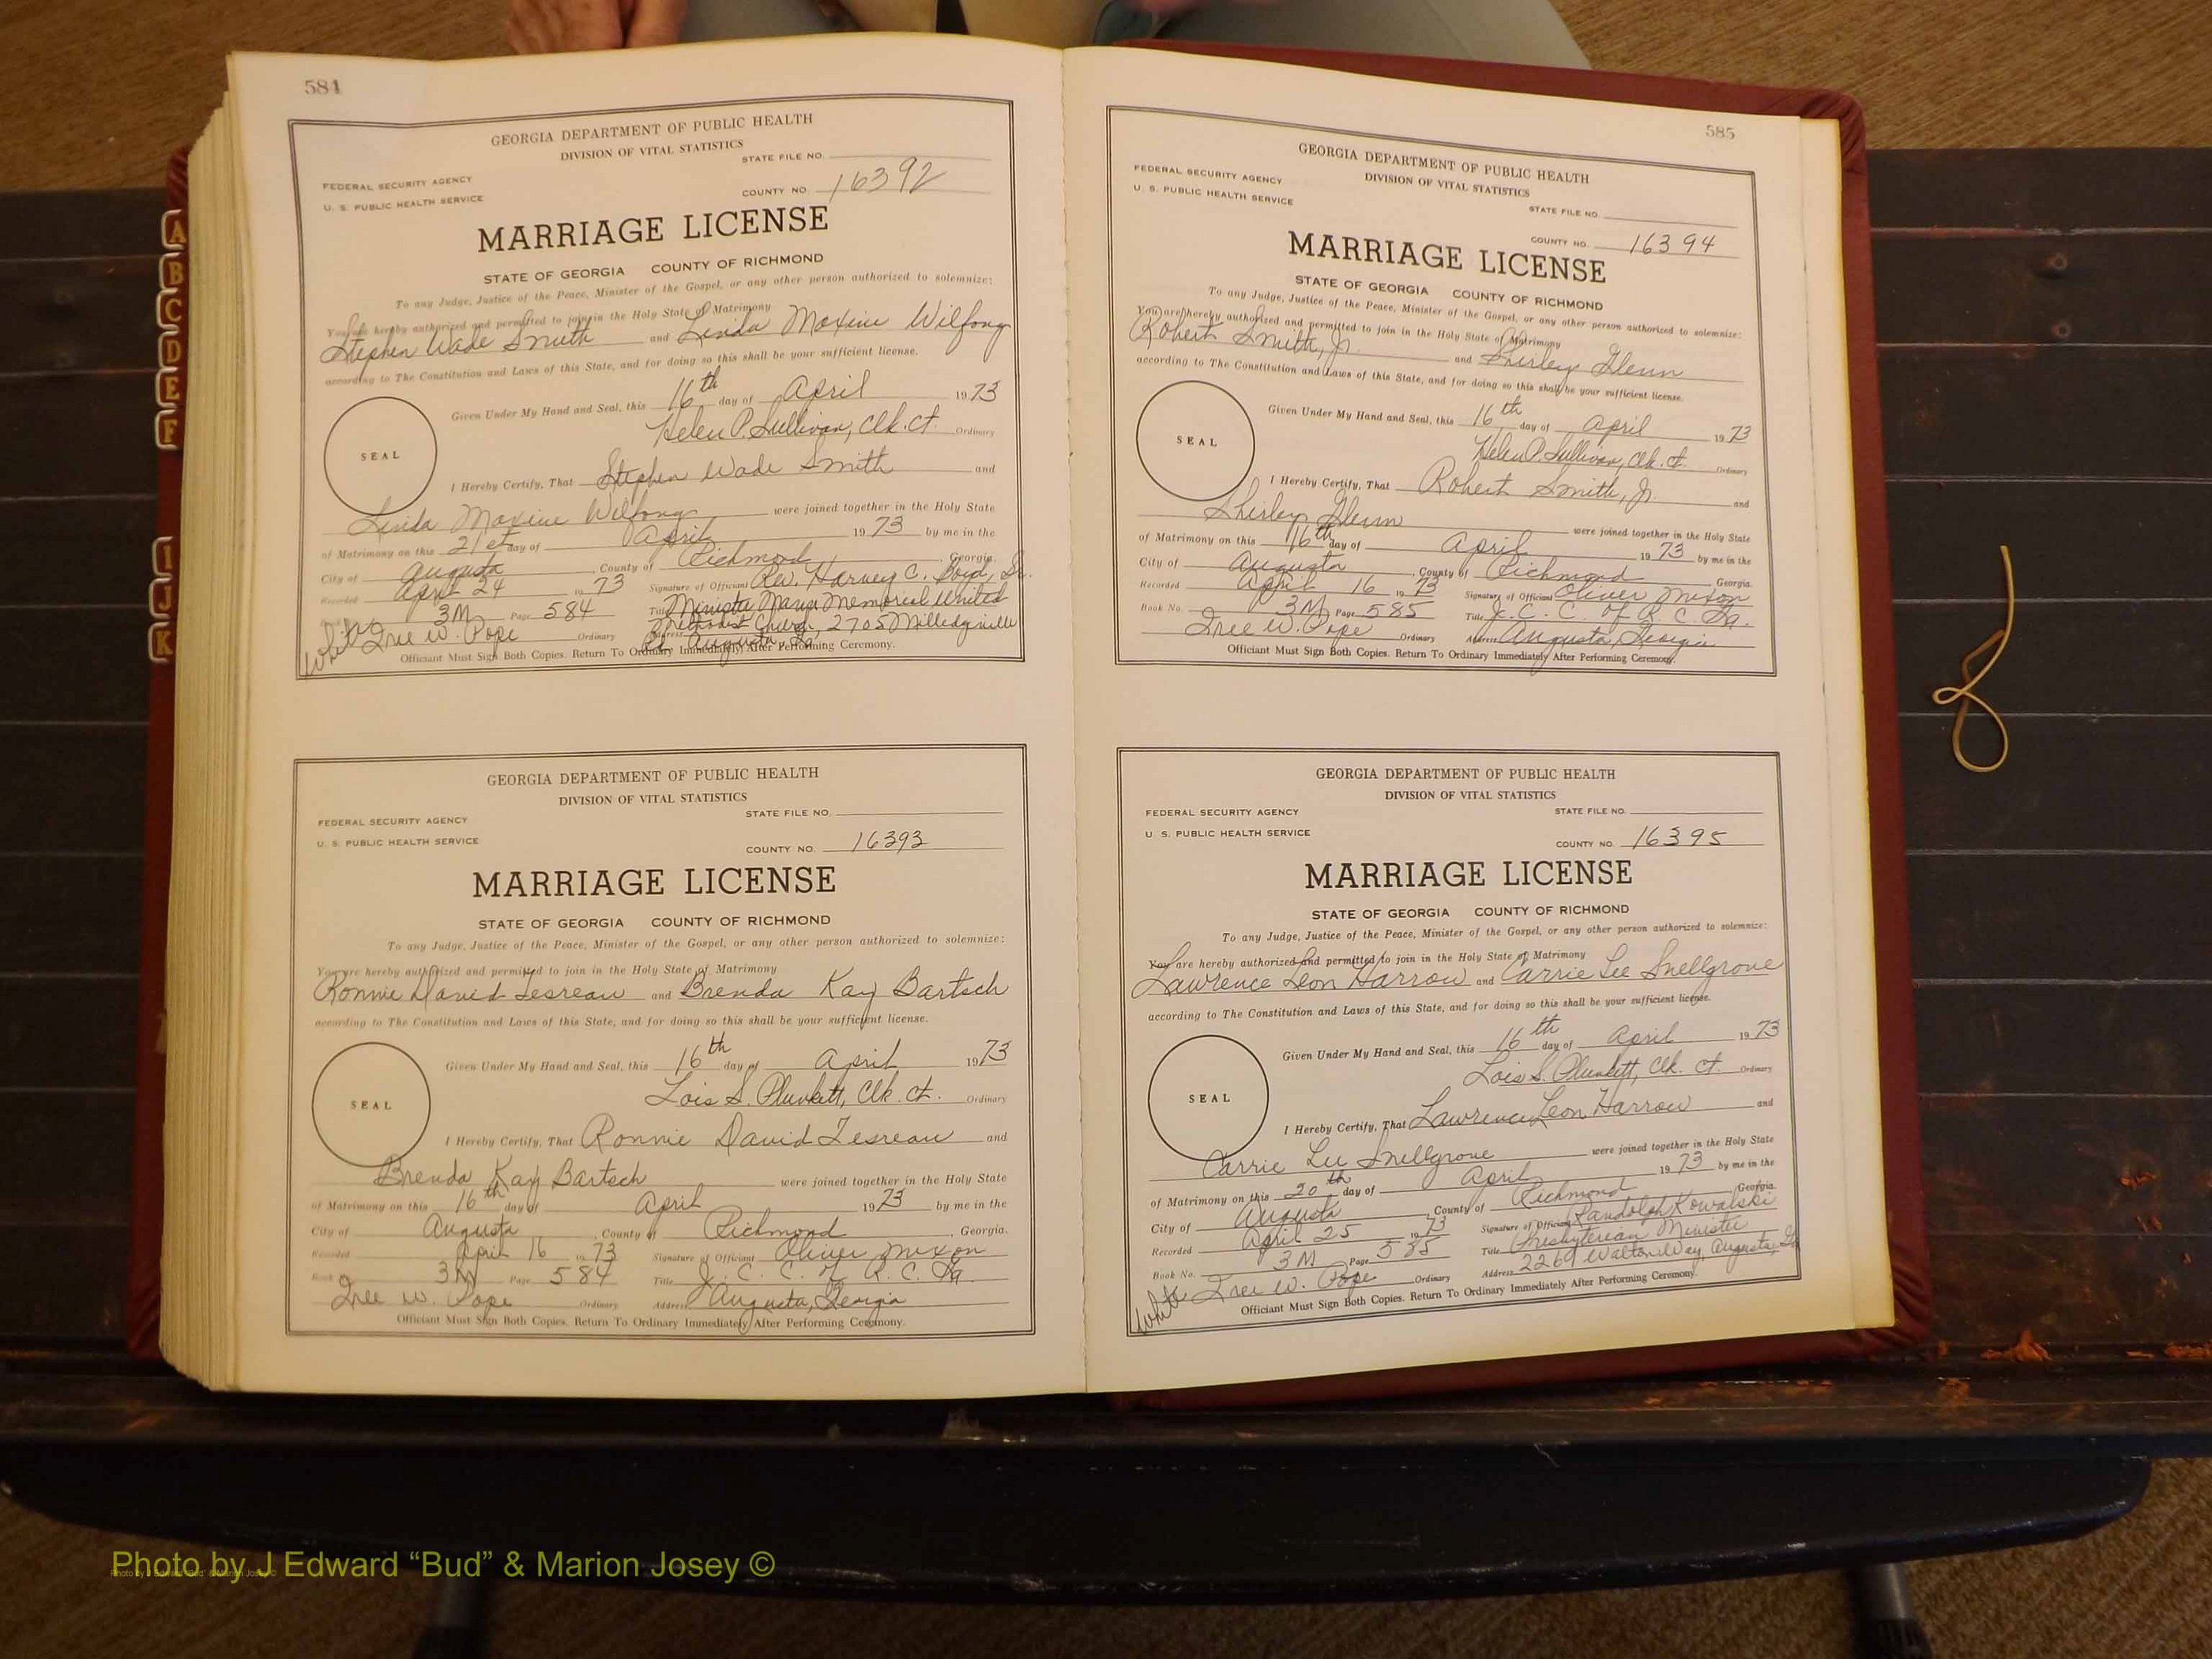 584
GEORGIA DEPARTMENT OF PUBLIC HEALTH
DIVISION OF VITAL STATISTICS
STATE FILE NO.
FEDERAL SECURITY AGENCY
U. S. PUBLIC HEALTH SERVICE
COUNTY NO. 16392
MARRIAGE LICENSE
STATE OF GEORGIA COUNTY OF RICHMOND
To any Judge, Justice of the Peace, Minister of the Gospel, or any other person authorized to solemnize:
You are hereby authorized and permitted to join in the Holy State of Matrimony
Stephen Wade Smith and Linda Maxine Wilfong
according to The Constitution and Laws of this State, and for doing so this shall be your sufficient license.
Given Under My Hand and Seal, this 16th day of April 1973
Helen P. Sullivan, Clk. Ct. Ordinary
SEAL
I Hereby Certify, That Stephen Wade Smith and
Linda Maxine Wilfong were joined together in the Holy State
of Matrimony on this 21st day of April 1973 by me in the
City of Augusta, County of Richmond, Georgia.
Recorded April 24 1973 Signature of Officiant Rev. Harvey C. Boyd, Sr.
Book 3M Page 584 Title Minister, Mann Memorial United
Methodist Church, 2705 Milledgeville
White Iree W. Pope Ordinary Address Rd. Augusta, Ga.
Officiant Must Sign Both Copies. Return To Ordinary Immediately After Performing Ceremony.
GEORGIA DEPARTMENT OF PUBLIC HEALTH
DIVISION OF VITAL STATISTICS
STATE FILE NO.
FEDERAL SECURITY AGENCY
U. S. PUBLIC HEALTH SERVICE
COUNTY NO. 16393
MARRIAGE LICENSE
STATE OF GEORGIA COUNTY OF RICHMOND
To any Judge, Justice of the Peace, Minister of the Gospel, or any other person authorized to solemnize:
You are hereby authorized and permitted to join in the Holy State of Matrimony
Ronnie David Lesreau and Brenda Kay Bartsch
according to The Constitution and Laws of this State, and for doing so this shall be your sufficient license.
Given Under My Hand and Seal, this 16th day of April 1973
Lois S. Plunkett, Clk. Ct. Ordinary
SEAL
I Hereby Certify, That Ronnie David Lesreau and
Brenda Kay Bartsch were joined together in the Holy State
of Matrimony on this 16th day of April 1973 by me in the
City of Augusta, County of Richmond, Georgia.
Recorded April 16 1973 Signature of Officiant Oliver Mixon
Book 3M Page 584 Title J. C. C. of R. C. Ga.
Iree W. Pope Ordinary Address Augusta, Georgia
Officiant Must Sign Both Copies. Return To Ordinary Immediately After Performing Ceremony.
585
GEORGIA DEPARTMENT OF PUBLIC HEALTH
DIVISION OF VITAL STATISTICS
FEDERAL SECURITY AGENCY
U. S. PUBLIC HEALTH SERVICE
STATE FILE NO.
COUNTY NO. 16394
MARRIAGE LICENSE
STATE OF GEORGIA COUNTY OF RICHMOND
To any Judge, Justice of the Peace, Minister of the Gospel, or any other person authorized to solemnize:
You are hereby authorized and permitted to join in the Holy State of Matrimony
Robert Smith, Jr. and Shirley Glenn
according to The Constitution and Laws of this State, and for doing so this shall be your sufficient license.
Given Under My Hand and Seal, this 16th day of April 1973
Helen P. Sullivan, Clk. Ct. Ordinary
SEAL
I Hereby Certify, That Robert Smith, Jr. and
Shirley Glenn were joined together in the Holy State
of Matrimony on this 16th day of April 1973 by me in the
City of Augusta, County of Richmond Georgia.
Recorded April 16 1973 Signature of Officiant Oliver Mixon
Book No. 3M Page 585 Title J. C. C. of R. C. Ga.
Iree W. Pope Ordinary Address Augusta, Georgia
Officiant Must Sign Both Copies. Return To Ordinary Immediately After Performing Ceremony.
GEORGIA DEPARTMENT OF PUBLIC HEALTH
DIVISION OF VITAL STATISTICS
FEDERAL SECURITY AGENCY
STATE FILE NO.
U. S. PUBLIC HEALTH SERVICE
COUNTY NO. 16395
MARRIAGE LICENSE
STATE OF GEORGIA COUNTY OF RICHMOND
To any Judge, Justice of the Peace, Minister of the Gospel, or any other person authorized to solemnize:
You are hereby authorized and permitted to join in the Holy State of Matrimony
Lawrence Leon Harrow and Carrie Lee Snellgrove
according to The Constitution and Laws of this State, and for doing so this shall be your sufficient license.
Given Under My Hand and Seal, this 16th day of April 1973
Lois S. Plunkett, Clk. Ct. Ordinary
SEAL
I Hereby Certify, That Lawrence Leon Harrow and
Carrie Lee Snellgrove were joined together in the Holy State
of Matrimony on this 20th day of April 1973 by me in the
City of Augusta, County of Richmond Georgia
Recorded April 25 1973 Signature of Officiant Randolph Kowalski
Book No. 3M Page 585 Title Presbyterian Minister
White Iree W. Pope Ordinary Address 2269 Walton Way, Augusta, Ga
Officiant Must Sign Both Copies. Return To Ordinary Immediately After Performing Ceremony.
A
B
C
D
E
F
I
J
K
Photo by J Edward “Bud” & Marion Josey ©
Photo by J Edward "Bud" & Marion Josey ©